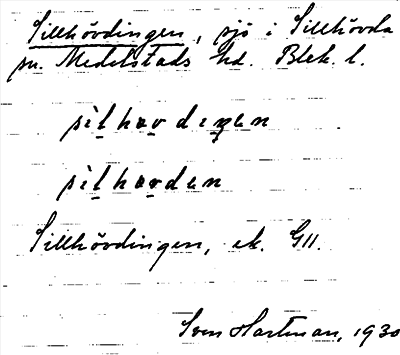 Sillhövdingen, sjö i Sillhövda
sn. Medelstads hd. Blek. l.
sìlhovdiŋen
sìlhovden
Sillhövdingen, ek. G11.
Sven Hartman, 1930